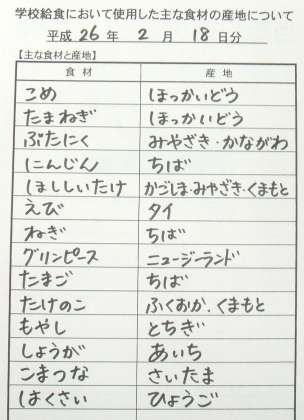 学校給食において使用した主な食材の産地について
平成 26 年 2 月 18 日分
【主な食材と産地】
食材 産地
こめ ほっかいどう
たまねぎ ほっかいどう
ぶたにく みやざき・かながわ
にんじん ちば
ほししいたけ かごしま・みやざき・くまもと
えび タイ
ねぎ ちば
グリンピース ニュージーランド
たまご ちば
たけのこ ふくおか・くまもと
もやし とちぎ
しょうが あいち
こまつな さいたま
はくさい ひょうご